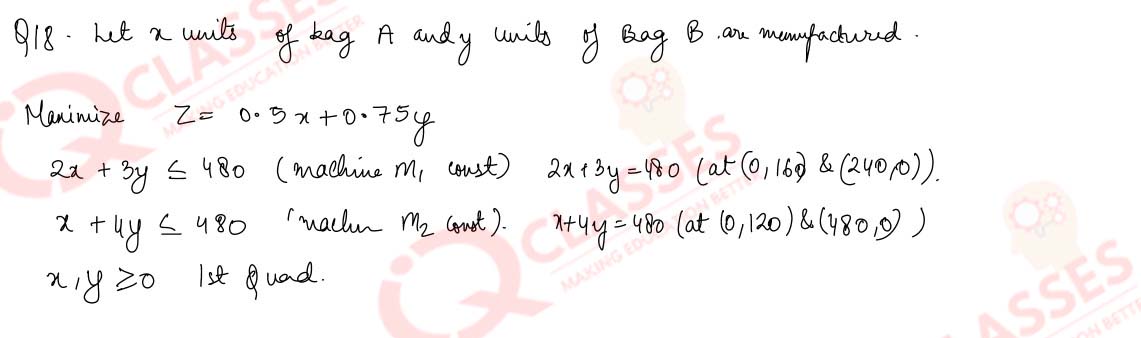 Q18. Let x units of bag A and y units of Bag B are manufactured.
Maximize Z = 0.5x + 0.75y
2x + 3y ≤ 480 (machine M₁ const) 2x + 3y = 480 (at (0, 160) & (240, 0)).
x + 4y ≤ 480 (machin M₂ const). x + 4y = 480 (at (0, 120) & (480, 0))
x, y ≥ 0 1st Quad.
CLASSES
MAKING EDUCATION BETTER
CLASSES
MAKING EDUCATION BETTER
CLASSES